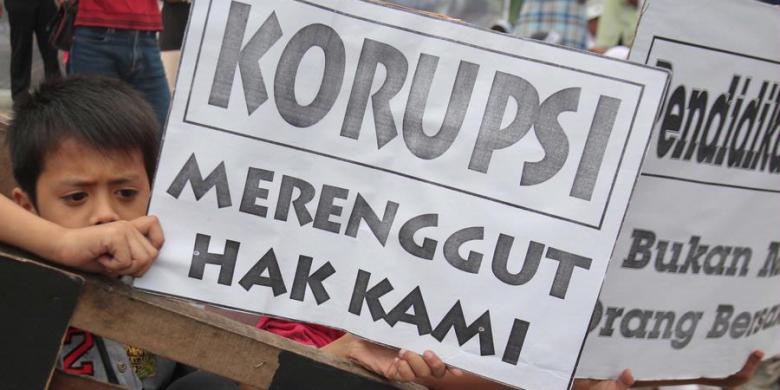 KORUPSI
MERENGGUT
HAK KAMI
Pendidik
Bukan
Orang Bersa
22